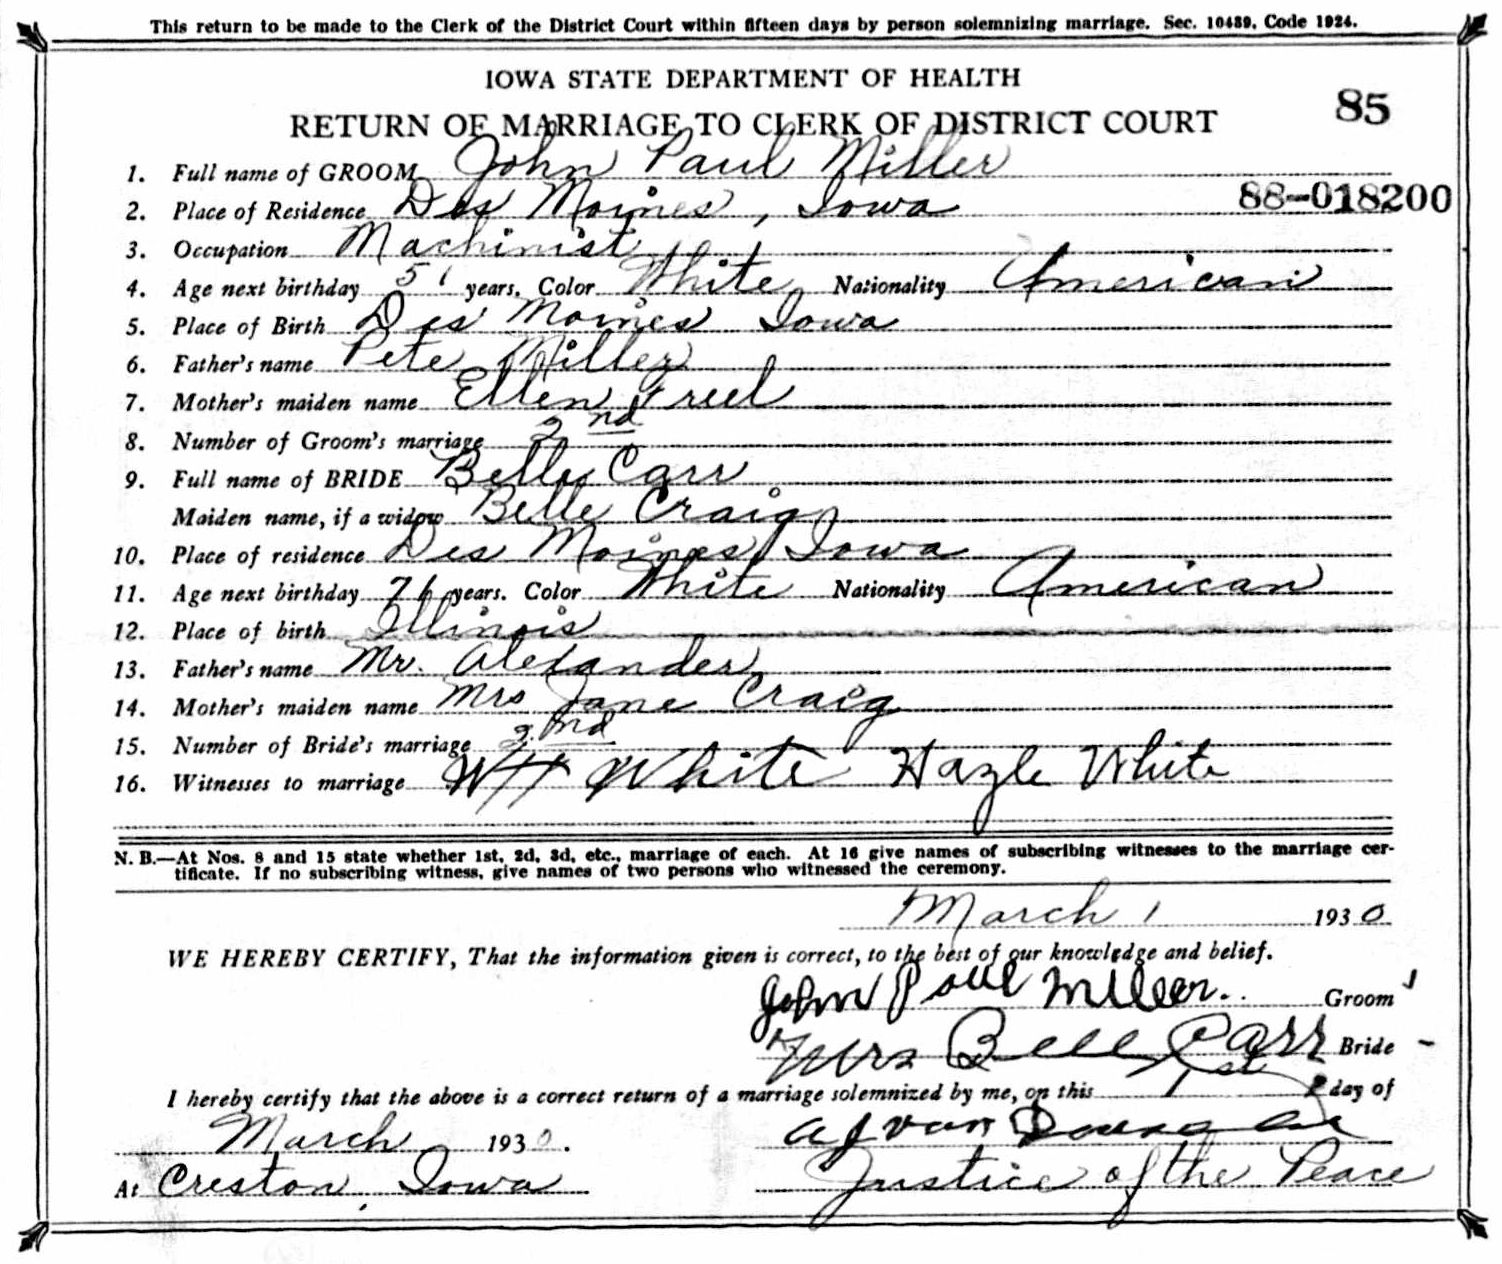 This return to be made to the Clerk of the District Court within fifteen days by person solemnizing marriage. Sec. 10439, Code 1924.
IOWA STATE DEPARTMENT OF HEALTH
85
RETURN OF MARRIAGE TO CLERK OF DISTRICT COURT
1. Full name of GROOM John Paul Miller
2. Place of Residence Des Moines, Iowa 88-018200
3. Occupation Machinist
4. Age next birthday 51 years. Color White Nationality American
5. Place of Birth Des Moines Iowa
6. Father's name Pete Miller
7. Mother's maiden name Ellen Freel
8. Number of Groom's marriage 2nd
9. Full name of BRIDE Belle Carr
Maiden name, if a widow Belle Craig
10. Place of residence Des Moines, Iowa
11. Age next birthday years. Color White Nationality American
12. Place of birth Illinois
13. Father's name Mr. Alexander
14. Mother's maiden name Mrs Jane Craig
15. Number of Bride's marriage 2nd
16. Witnesses to marriage White Hazle White
N. B.—At Nos. 8 and 15 state whether 1st, 2d, 3d, etc., marriage of each. At 16 give names of subscribing witnesses to the marriage cer-
tificate. If no subscribing witness, give names of two persons who witnessed the ceremony.
March 1 1930
WE HEREBY CERTIFY, That the information given is correct, to the best of our knowledge and belief.
John Paul Miller. Groom
Mrs Bell Carr Bride
I hereby certify that the above is a correct return of a marriage solemnized by me, on this 1st day of
March 1930.
At Creston, Iowa Justice of the Peace